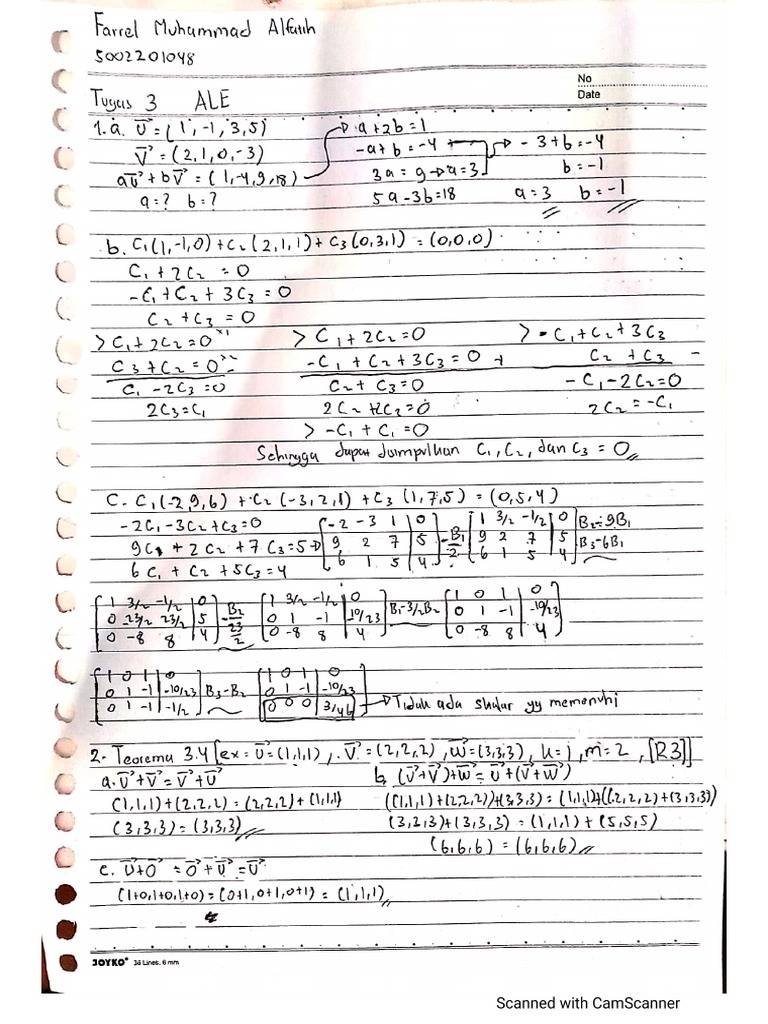 Farrel Muhammad Alfatih
5002201048
No
Date
Tugas 3 ALE
1. a. U⃗ = (1, -1, 3, 5)
V⃗ = (2, 1, 0, -3)
aU⃗ + bV⃗ = (1, -4, 9, 18)
a = ? b = ?
→ a + 2b = 1
-a + b = -4
3a = 9 → a = 3
5a - 3b = 18
→ - 3 + b = -4
b = -1
a = 3 b = -1
b. C₁(1,-1,0) + C₂(2,1,1) + C₃(0,3,1) = (0,0,0)
C₁ + 2C₂ = 0
-C₁ + C₂ + 3C₃ = 0
C₂ + C₃ = 0
> C₁ + 2C₂ = 0 ˣ¹
C₃ + C₂ = 0
C₁ - 2C₃ = 0
2C₃ = C₁
> C₁ + 2C₂ = 0
-C₁ + C₂ + 3C₃ = 0 +
C₂ + C₃ = 0
2C₂ + 2C₃ = 0
> -C₁ + C₁ = 0
> - C₁ + C₂ + 3C₃
C₂ + C₃ -
- C₁ - 2C₂ = 0
2C₂ = -C₁
Sehingga dapat disimpulkan C₁, C₂, dan C₃ = 0
C. C₁(-2,9,6) + C₂(-3,2,1) + C₃(1,7,5) = (0,5,4)
-2C₁ - 3C₂ + C₃ = 0
9C₁ + 2C₂ + 7C₃ = 5 →
6C₁ + C₂ + 5C₃ = 4
[-2 -3 1 | 0]
[9 2 7 | 5] -B₁/2
[6 1 5 | 4]
[1 3/2 -1/2 | 0] B₂-9B₁
[9 2 7 | 5] B₃-6B₁
[6 1 5 | 4]
[1 3/2 -1/2 | 0]
[0 23/2 23/2 | 5] -B₂/(23/2)
[0 -8 8 | 4]
[1 3/2 -1/2 | 0]
[0 1 -1 | -10/23] B₁-3/2B₂
[0 -8 8 | 4]
[1 0 1 | 0]
[0 1 -1 | -10/23]
[0 -8 8 | 4]
[1 0 1 | 0]
[0 1 -1 | -10/23] B₃-B₂
[0 1 -1 | -1/2]
[1 0 1 | 0]
[0 1 -1 | -10/23]
[0 0 0 | 3/46] → Tidak ada skalar yg memenuhi
2. Teorema 3.4 [ex = U⃗ = (1,1,1), V⃗ = (2,2,2), W⃗ = (3,3,3), k = 1, m = 2, [R3]]
a. U⃗ + V⃗ = V⃗ + U⃗
(1,1,1) + (2,2,2) = (2,2,2) + (1,1,1)
(3,3,3) = (3,3,3)
b. (U⃗ + V⃗) + W⃗ = U⃗ + (V⃗ + W⃗)
((1,1,1) + (2,2,2)) + (3,3,3) = (1,1,1) + ((2,2,2) + (3,3,3))
(3,2,3) + (3,3,3) = (1,1,1) + (5,5,5)
(6,6,6) = (6,6,6)
c. U⃗ + O⃗ = O⃗ + U⃗ = U⃗
(1+0, 1+0, 1+0) = (0+1, 0+1, 0+1) = (1,1,1)
JOYKO® 36 Lines, 6 mm
Scanned with CamScanner